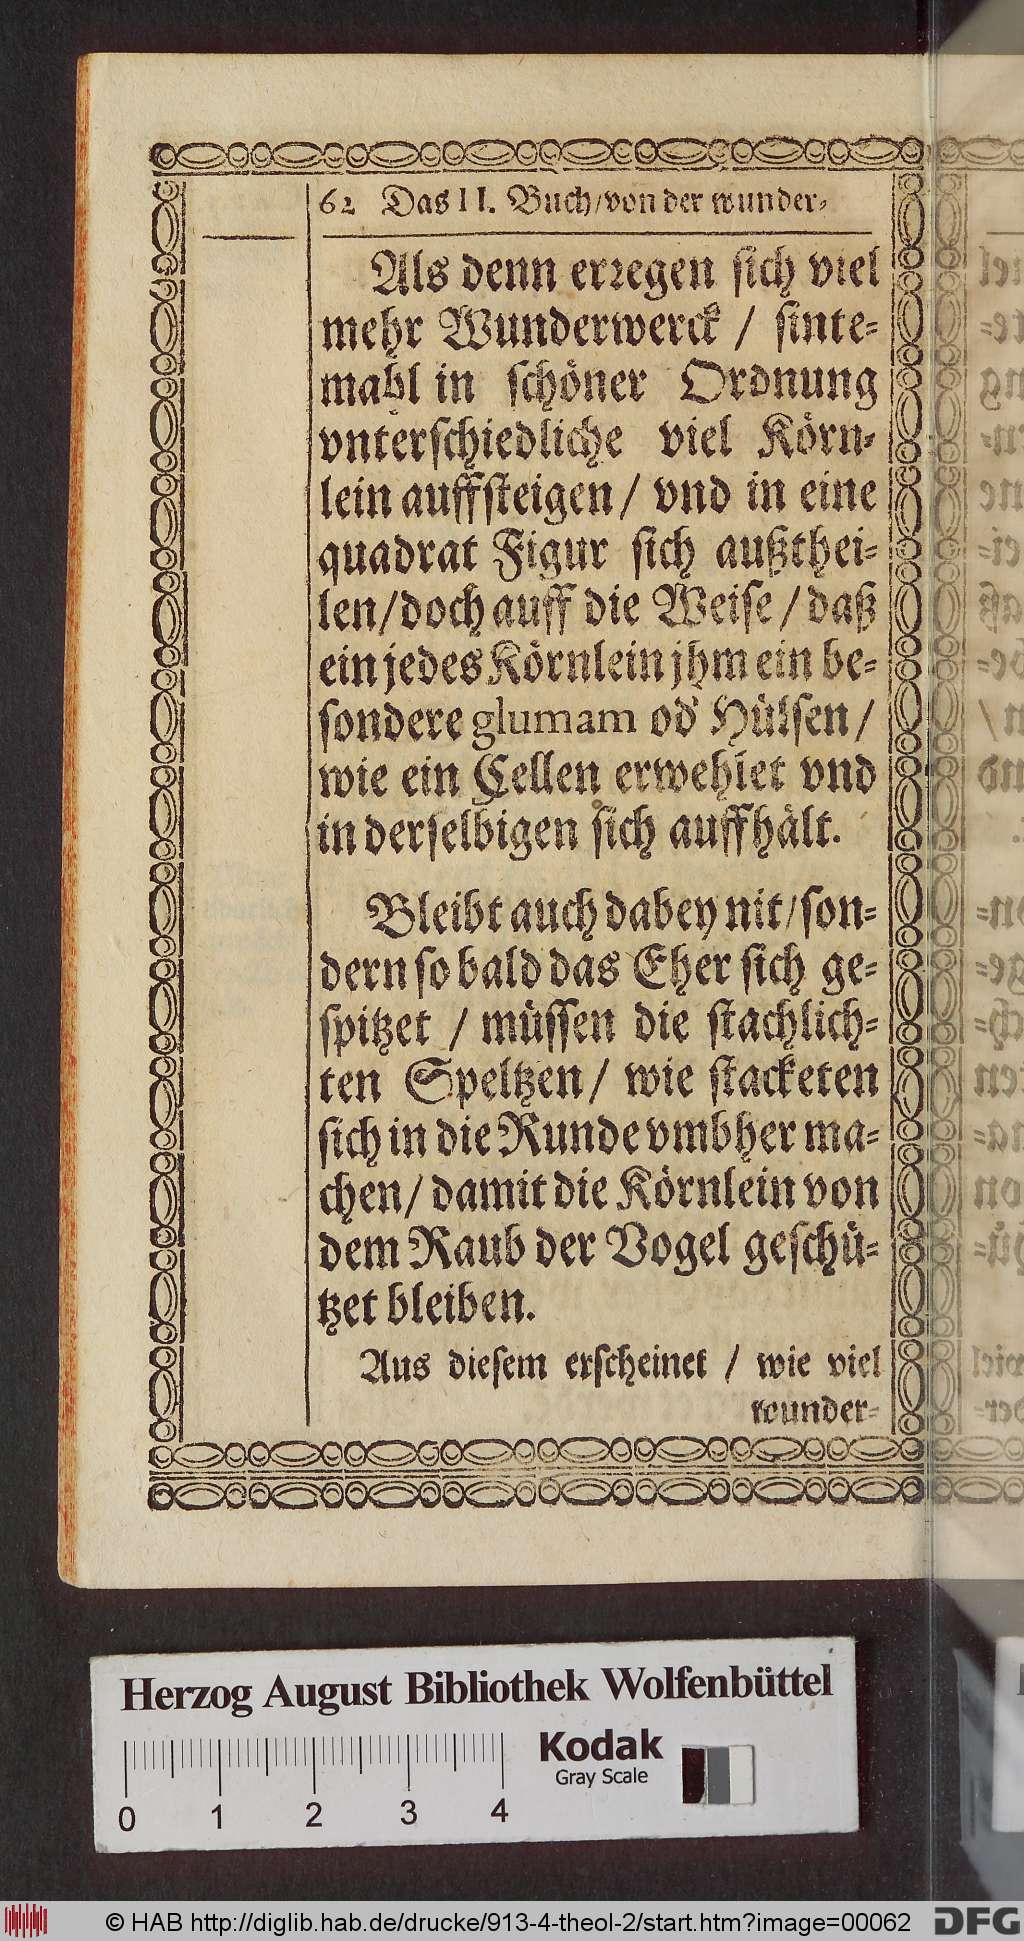 62 Das II. Buch/von der wunder-
Als denn erregen sich viel
mehr Wunderwerck / sinte-
mahl in schöner Ordnung
vnterschiedliche viel Körn-
lein auffsteigen/ vnd in eine
quadrat Figur sich außthei-
len/doch auff die Weise/daß
ein jedes Körnlein jhm ein be-
sondere glumam od' Hülsen/
wie ein Cellen erwehlet vnd
in derselbigen sich auffhält.
Bleibt auch dabey nit/son-
dern so bald das Eher sich ge-
spitzet / müssen die stachlich-
ten Speltzen/ wie stacketen
sich in die Runde vmbher ma-
chen/damit die Körnlein von
dem Raub der Vogel geschü-
tzet bleiben.
Aus diesem erscheinet / wie viel
wunder-
Herzog August Bibliothek Wolfenbüttel
Kodak
Gray Scale
0 1 2 3 4
© HAB http://diglib.hab.de/drucke/913-4-theol-2/start.htm?image=00062
DFG